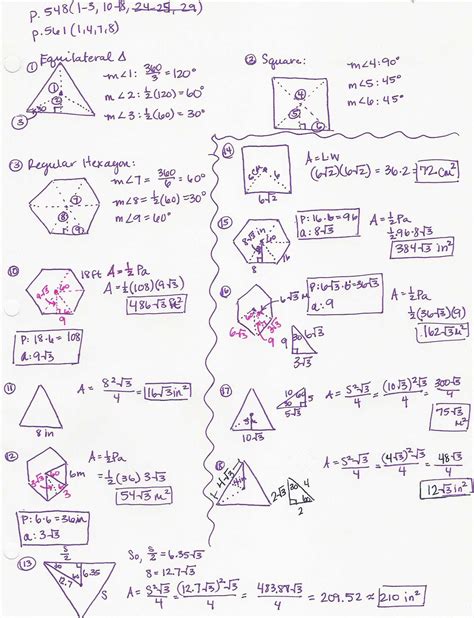 p. 548 (1-3, 10-18, 24-25, 29)
p. 561 (1,4,7,8)
① Equilateral Δ
1
2
30
3
m∠1: 360/3 = 120°
m∠2: ½(120) = 60°
m∠3: ½(60) = 30°
② Square:
4
5
6
m∠4: 90°
m∠5: 45°
m∠6: 45°
③ Regular Hexagon:
7
8
9
m∠7 = 360/6 = 60°
m∠8 = ½(60) = 30°
m∠9 = 60°
⑭
6√2
A = LW
(6√2)(6√2) = 36·2 = 72cm²
⑮
8√3 in
60
8
16
P: 16·6 = 96
a: 8√3
A = ½Pa
½·96·8√3
384√3 in²
⑩
18ft
9√3
9
A = ½Pa
A = ½(108)(9√3)
486√3 ft²
P: 18·6 = 108
a: 9√3
⑯
6√3 M
6√3
3√3
9
P: 6√3·6 = 36√3
a: 9
9
30
6√3
A = ½Pa
½(36√3)(9)
162√3 M²
⑪
8in
A = 8²√3/4 = 16√3 in²
⑰
10√3
10
30
60
5
5√3
A = S²√3/4 = (10√3)²√3/4 = 300√3/4
75√3 M²
⑫
6m
60
3
A = ½Pa
= ½(36) 3√3
54√3 m²
P: 6·6 = 36in
a: 3√3
⑱
4√3
4in
2√3
30
4
2
A = S²√3/4 = (4√3)²√3/4 = 48√3/4
12√3 in²
⑬
S/2
12.7
6.35
S
So, S/2 = 6.35√3
S = 12.7√3
A = S²√3/4 = (12.7√3)²√3/4 = 483.87√3/4 = 209.52 ≈ 210 in²